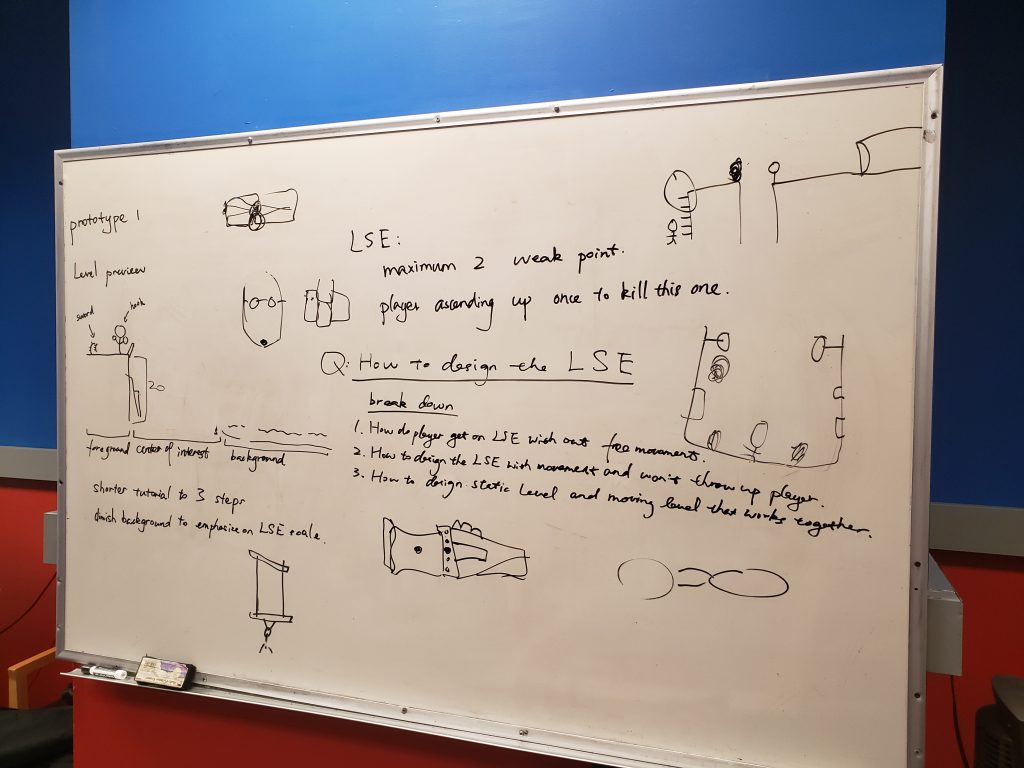 prototype 1
Level preview
sword
hook
20
foreground center of interest background
shorter tutorial to 3 steps
dimish background to emphasize on LSE scale.
LSE:
maximum 2 weak point.
player ascending up once to kill this one.
Q: How to design the LSE
break down
1. How do player get on LSE with out free movement.
2. How to design the LSE with movement and won't throw up player.
3. How to design static level and moving level that works together.